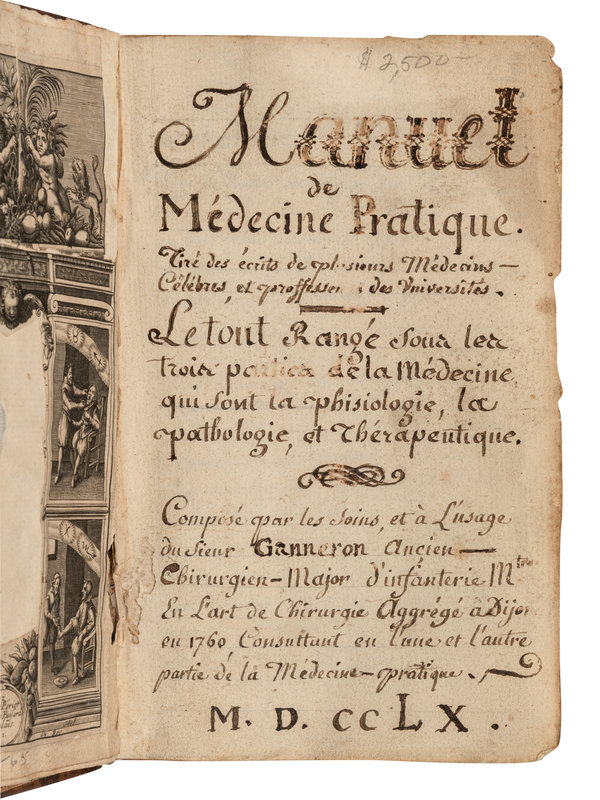 $ 2,500-
Manuel
de
Médecine Pratique.
Tiré des écrits de plusieurs Médecins —
Célébres, et proffesseurs des Universités.
Le tout Rangé sous les
trois parties de la Médecine,
qui sont la phisiologie, la
pathologie, et thérapeutique.
Composé par les Soins, et à L'usage
du Sieur Ganneron ancien —
Chirurgien-Major d'infanterie Mtre
En L'art de Chirurgie Aggrégé à Dijon
en 1760, Consultant en l'une et l'autre
partie de la Médecine-pratique.
M. D. CC L X.